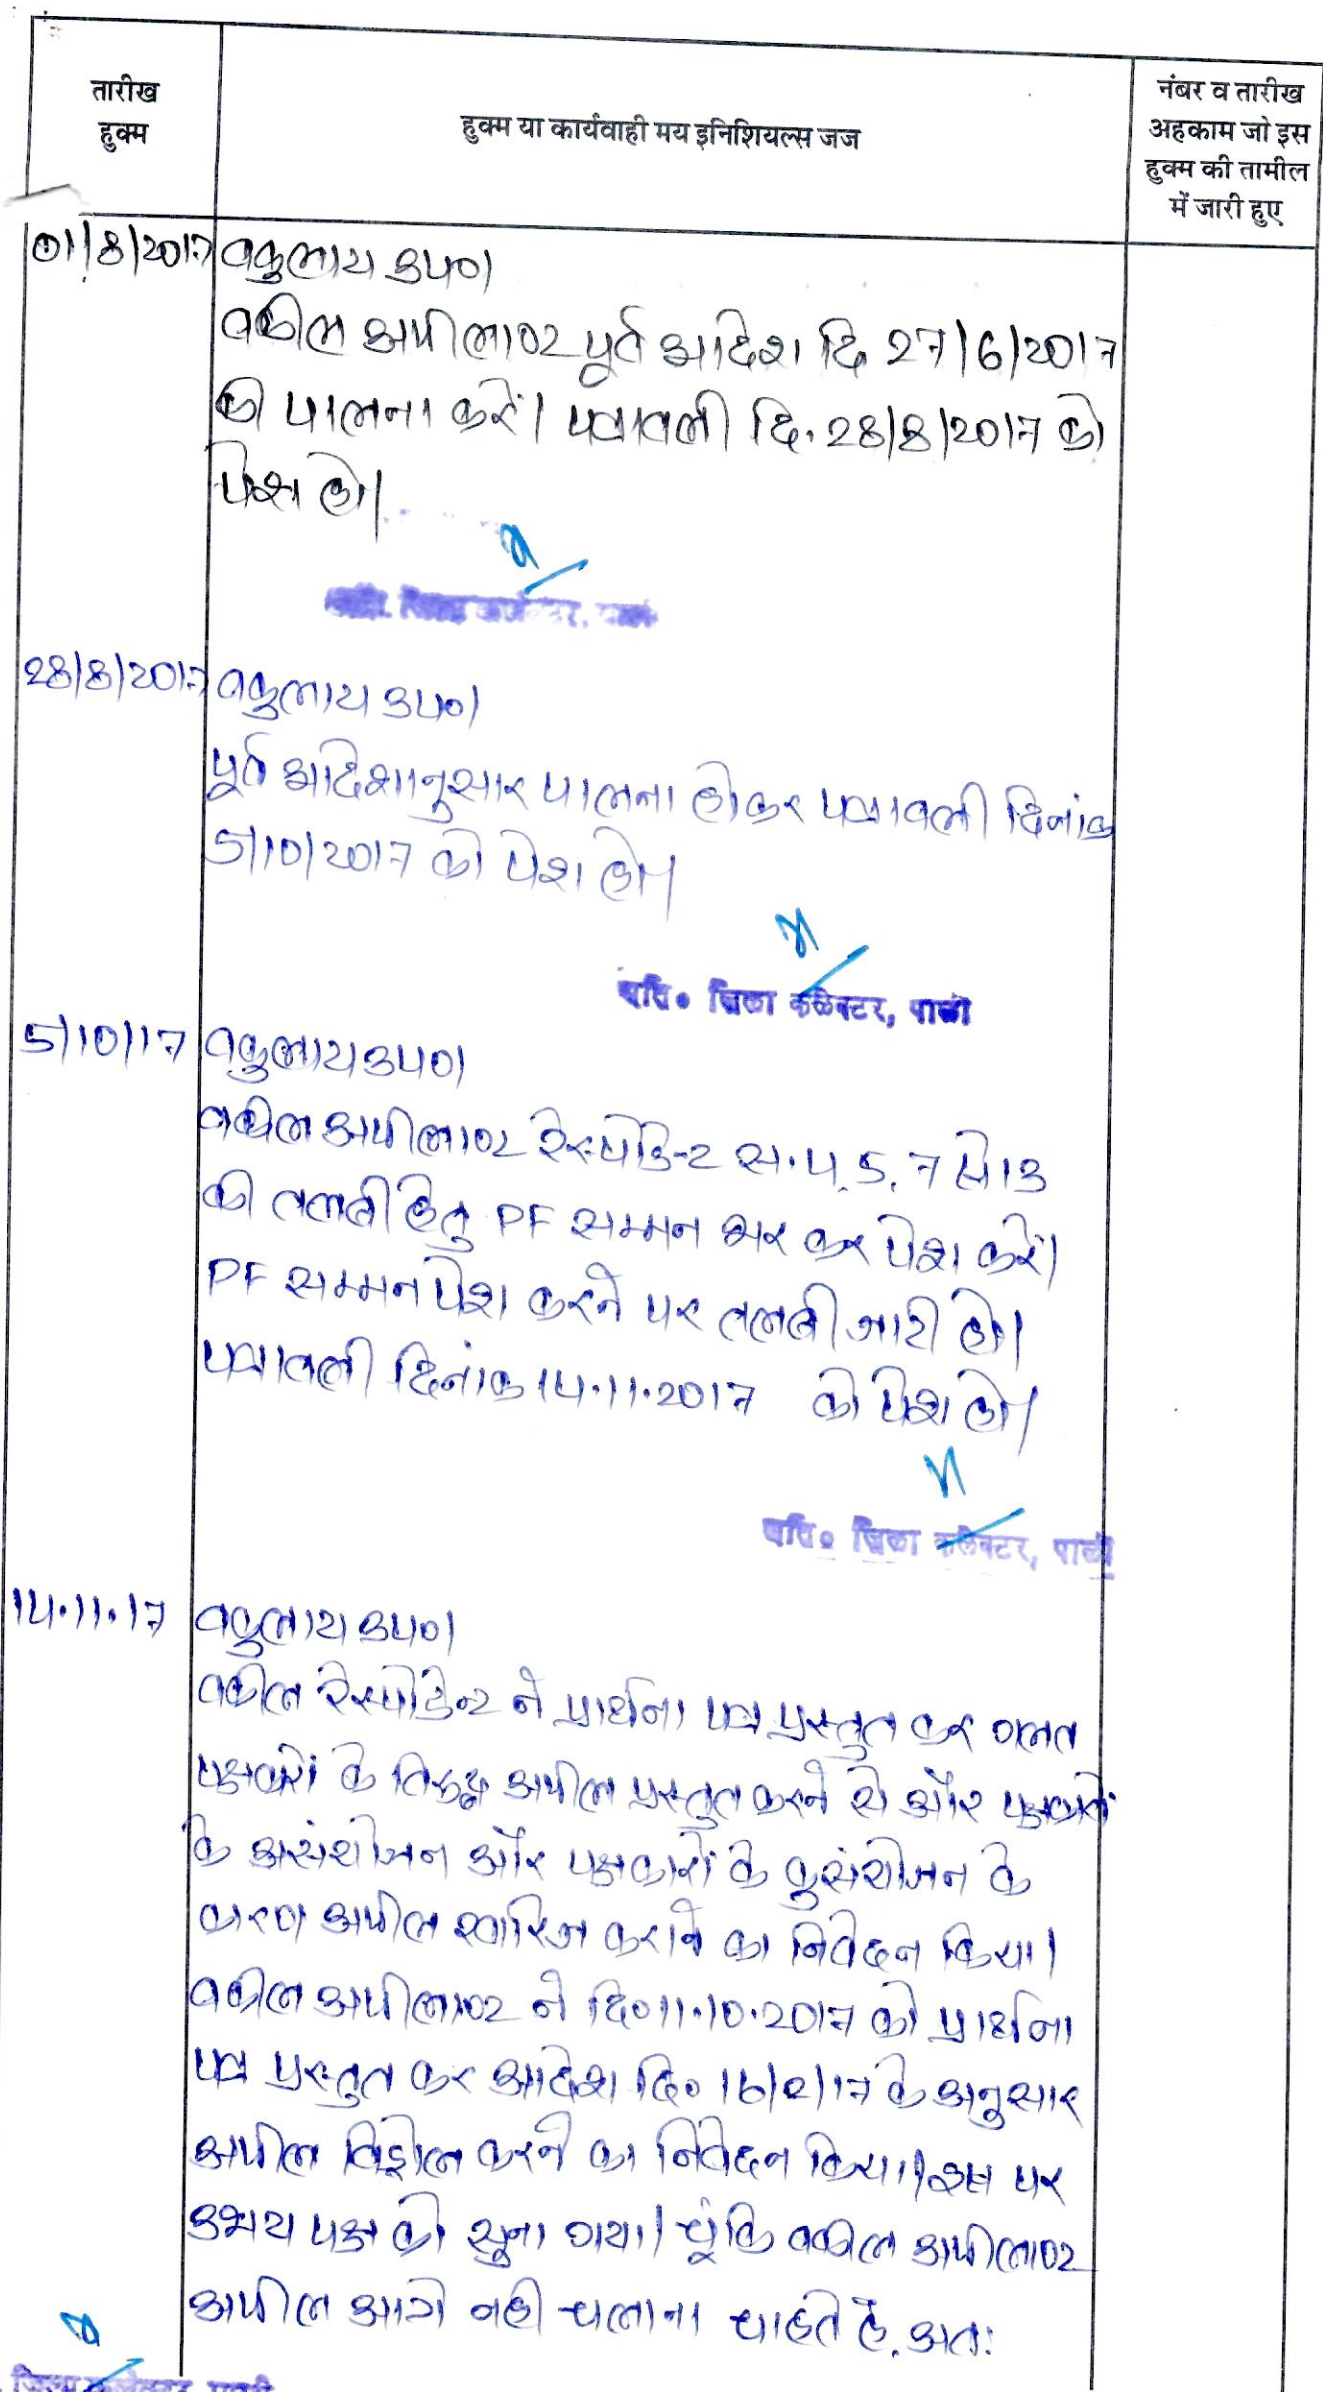 तारीख
हुक्म
हुक्म या कार्यवाही मय इनिशियल्स जज
नंबर व तारीख
अहकाम जो इस
हुक्म की तामील
में जारी हुए
01/8/2017 वकुलाय उप०।
वकील अपीलाण्ट पूर्व आदेश दि 27/6/2017
की पालना करें। पत्रावली दि. 28/8/2017 को
पेश हो।
28/8/2017 वकुलाय उप०।
पूर्व आदेशानुसार पालना होकर पत्रावली दिनांक
5/10/2017 को पेश हो।
अति० जिला कलेक्टर, पाली
5/10/17 वकुलाय उप०।
वकील अपीलाण्ट रेस्पोडेन्ट स. 4, 5, 7 से 13
की तलबी हेतु PF सम्मन भर कर पेश करें।
PF सम्मन पेश करने पर तलबी जारी हो।
पत्रावली दिनांक 14.11.2017 को पेश हो।
अति० जिला कलेक्टर, पाली
14.11.17 वकुलाय उप०।
वकील रेस्पोडेन्ट ने प्रार्थना पत्र प्रस्तुत कर गलत
पक्षकारों के विरूद्ध अपील प्रस्तुत करने से और पक्षकारों
के असंयोजन और पक्षकारों के कुसंयोजन के
कारण अपील खारिज कराने का निवेदन किया।
वकील अपीलाण्ट ने दि० 11.10.2017 को प्रार्थना
पत्र प्रस्तुत कर आदेश दि० 16/2/17 के अनुसार
अपील विड्रोल करने का निवेदन किया। इस पर
उभय पक्ष को सुना गया। चूंकि वकील अपीलाण्ट
अपील आगे नही चलाना चाहते है, अतः